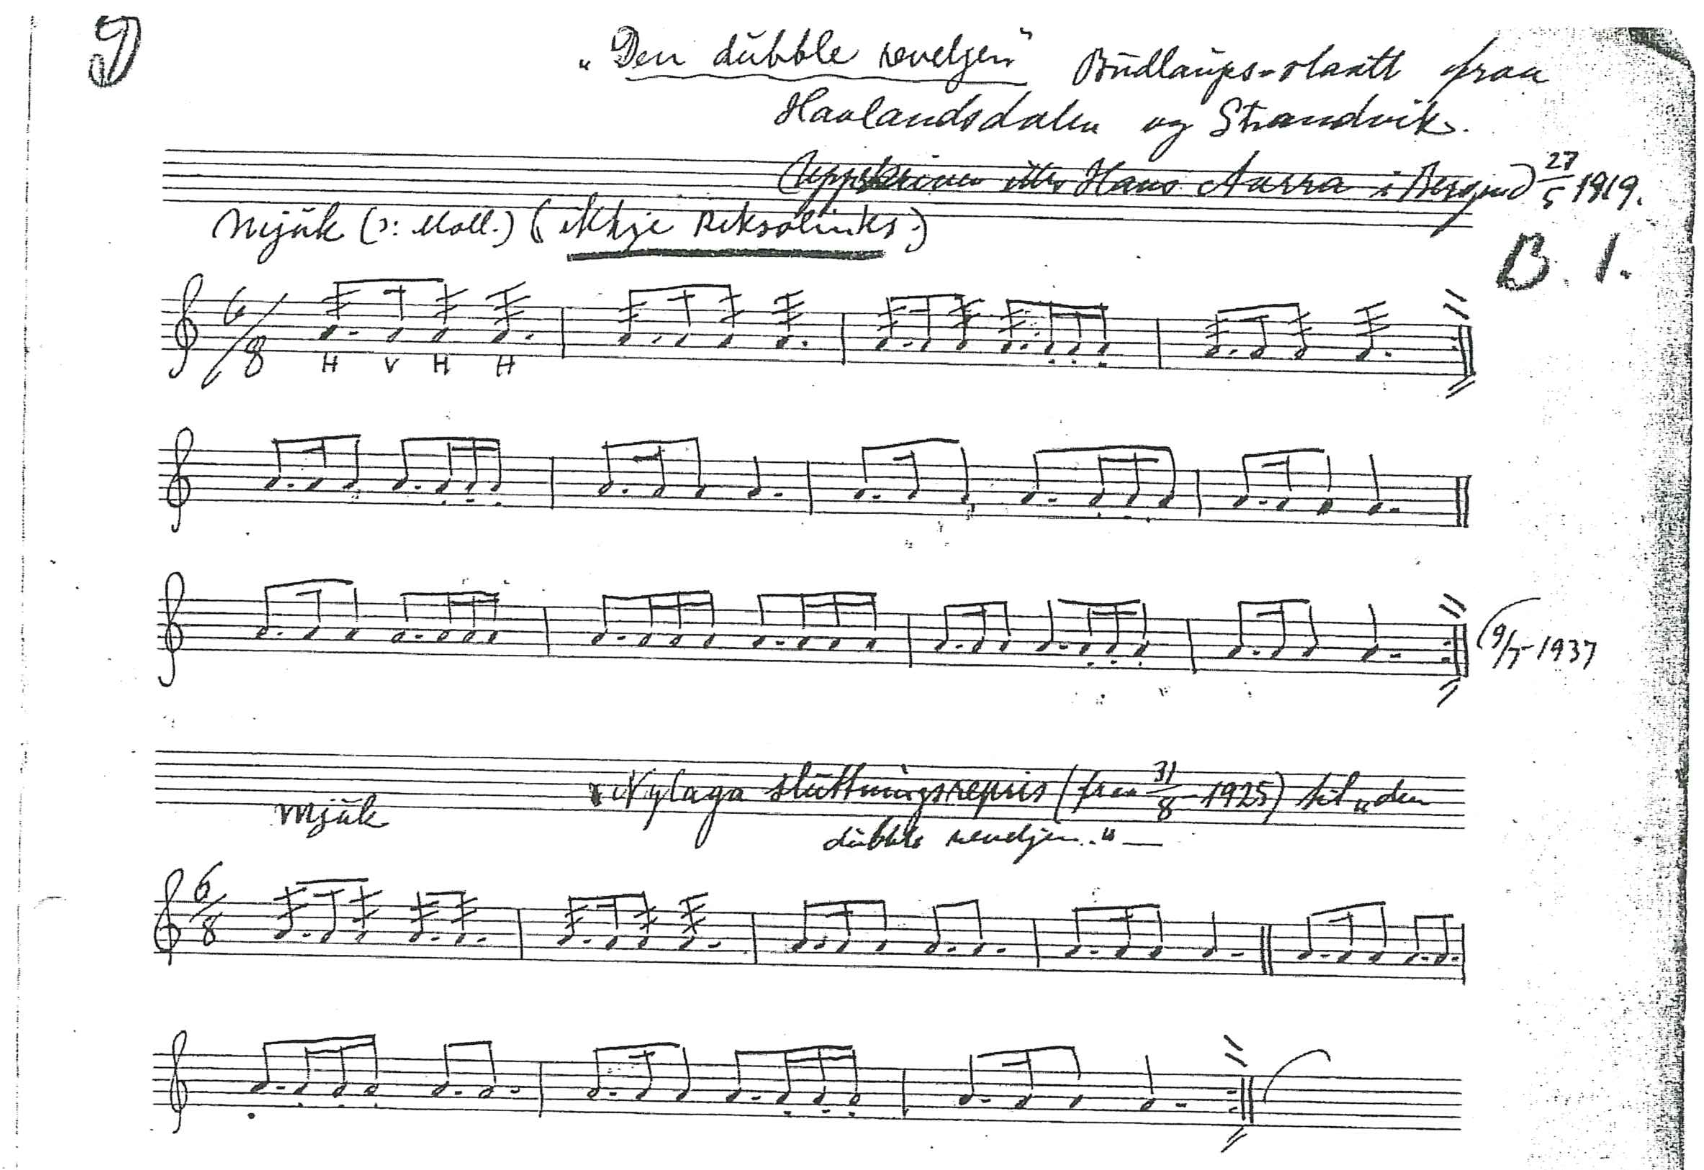 9)
„Den dŭbble reveljen" Brŭdlaŭps-slaatt fraa
Haalandsdalen og Strandvik.
(Uppskrive etter Hans Aarra i Bergen) 27/5 1919.
Mjŭk (ɔ: Moll.) (ikkje
B. 1.
6/8
H v H H
(9/5-1937
Nylaga slŭttningsrepris (fraa 31/8-1925) til „den
Mjŭk
dŭbble reveljen."—
6/8